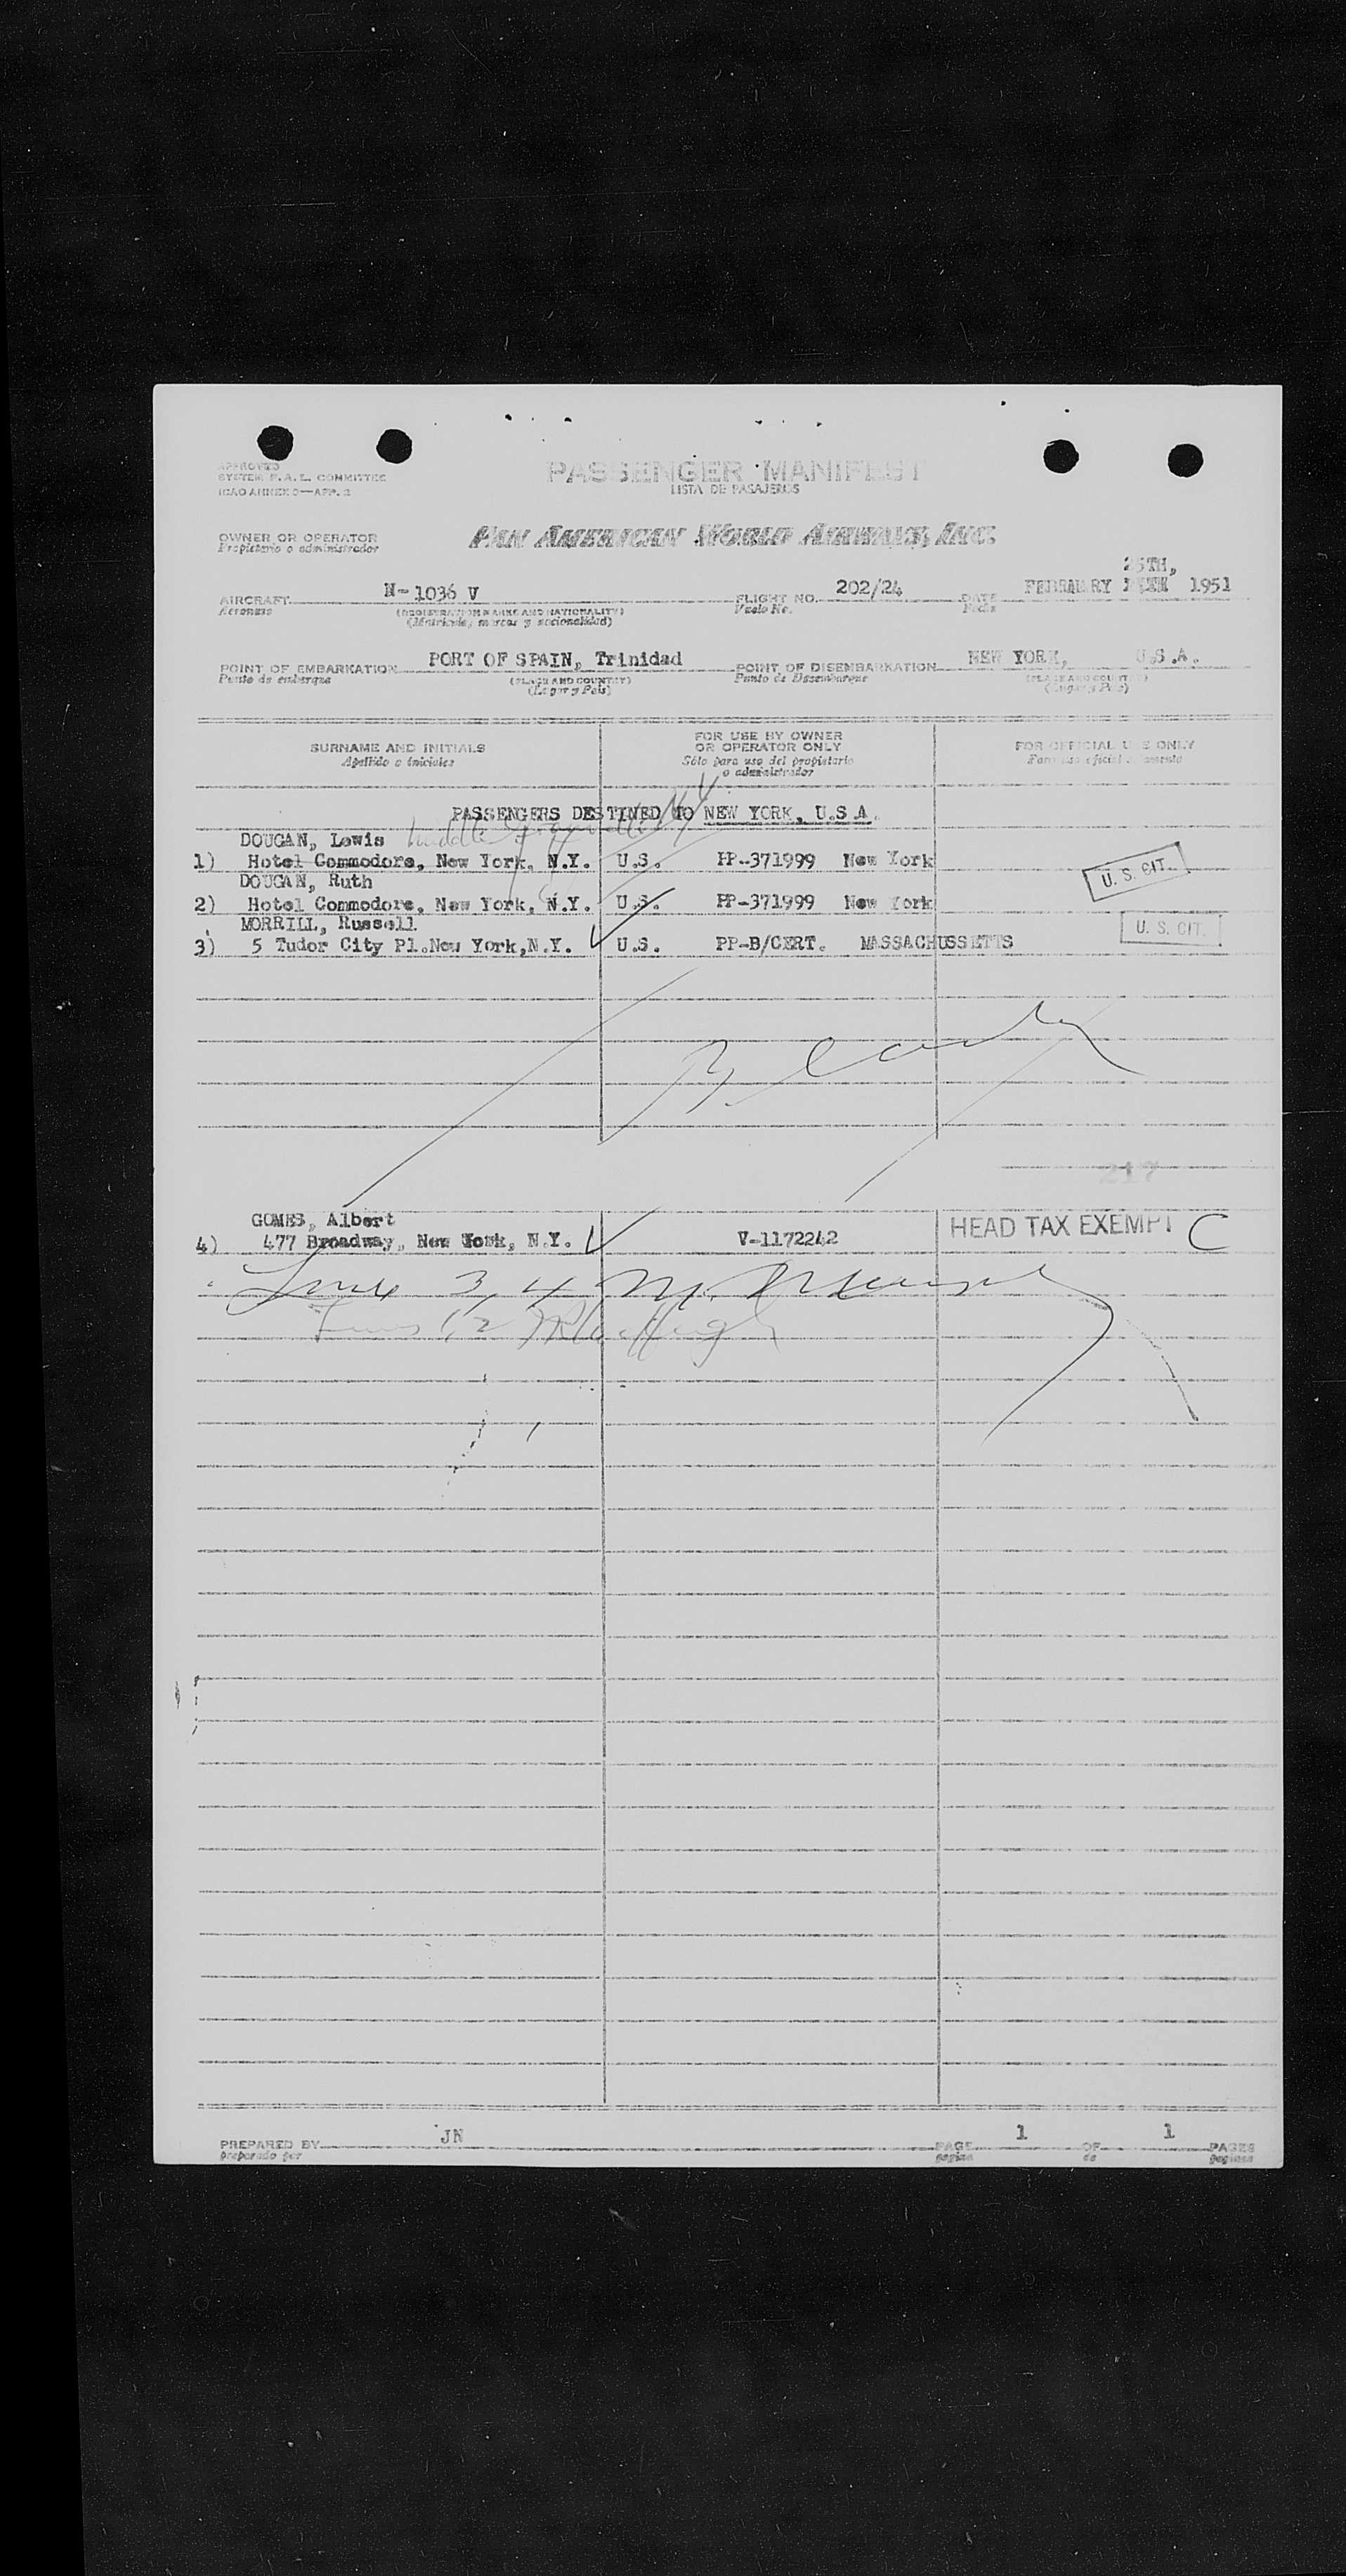 APPROVED
SYSTEM F.A.L. COMMITTEE
ICAO ANNEX 9—APP. 2
PASSENGER MANIFEST
LISTA DE PASAJEROS
OWNER OR OPERATOR
Propietario o administrador
PAN AMERICAN WORLD AIRWAYS, INC.
25TH,
AIRCRAFT N-1036 V FLIGHT NO. 202/24 DATE FEBRUARY 1951
Aeronave (REGISTRATION MARKS AND NATIONALITY) Vuelo No. Fecha
(Matricula, marcas y nacionalidad)
POINT OF EMBARKATION PORT OF SPAIN, Trinidad POINT OF DISEMBARKATION NEW YORK, U.S.A.
Punto de embarque (PLACE AND COUNTRY) Punto de Desembarque (PLACE AND COUNTRY)
(Lugar y Pais) (Lugar y Pais)
SURNAME AND INITIALS FOR USE BY OWNER OR OPERATOR ONLY FOR OFFICIAL USE ONLY
Apellido e iniciales Sólo para uso del propietario o administrador Para uso oficial solamente
PASSENGERS DESTINED TO NEW YORK, U.S.A.
DOUGAN, Lewis
1) Hotel Commodore, New York, N.Y. U.S. PP-371999 New York
DOUGAN, Ruth U. S. CIT.
2) Hotel Commodore, New York, N.Y. U.S. PP-371999 New York
MORRILL, Russell U. S. CIT.
3) 5 Tudor City Pl.New York,N.Y. U.S. PP-B/CERT. MASSACHUSSETTS
217
GOMES, Albert HEAD TAX EXEMPT C
4) 477 Broadway, New York, N.Y. V-1172242
Line 3, 4
1, 2
PREPARED BY JN PAGE 1 OF 1 PAGES
preparado por pagina de paginas